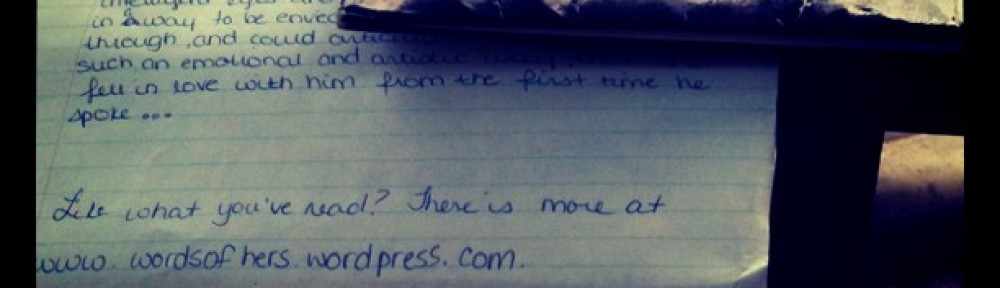 in away to be
through, and could
such an emotional and
fell in love with him from the first time he
spoke ...
Like what you've read? There is more at
www.wordsofhers.wordpress.com.